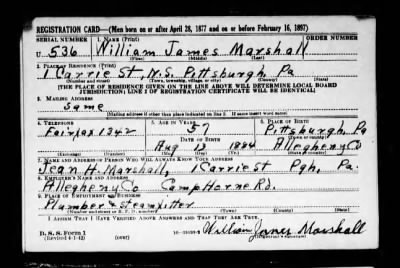 REGISTRATION CARD—(Men born on or after April 28, 1877 and on or before February 16, 1897)
SERIAL NUMBER 1. NAME (Print) ORDER NUMBER
U 536 William James Marshall
(First) (Middle) (Last)
2. PLACE OF RESIDENCE (Print)
1 Carrie St, N.S. Pittsburgh, Pa
(Number and street) (Town, township, village, or city) (County) (State)
[THE PLACE OF RESIDENCE GIVEN ON THE LINE ABOVE WILL DETERMINE LOCAL BOARD
JURISDICTION; LINE 2 OF REGISTRATION CERTIFICATE WILL BE IDENTICAL]
3. MAILING ADDRESS
Same
[Mailing address if other than place indicated on line 2. If same insert word same]
4. TELEPHONE 5. AGE IN YEARS 6. PLACE OF BIRTH
Fairfax 1342 57 Pittsburgh Pa
DATE OF BIRTH (Town or county)
Aug 12 1884 Allegheny Co
(Exchange) (Number) (Mo.) (Day) (Yr.) (State or country)
7. NAME AND ADDRESS OF PERSON WHO WILL ALWAYS KNOW YOUR ADDRESS
Jean H. Marshall, 1 Carrie St Pgh, Pa.
8. EMPLOYER'S NAME AND ADDRESS
Allegheny Co Camp Horne Rd.
9. PLACE OF EMPLOYMENT OR BUSINESS
Plumber & Steamfitter
(Number and street or R. F. D. number) (Town) (County) (State)
I AFFIRM THAT I HAVE VERIFIED ABOVE ANSWERS AND THAT THEY ARE TRUE.
D. S. S. Form 1
(Revised 4-1-42) (over) William James Marshall
(Registrant's signature)